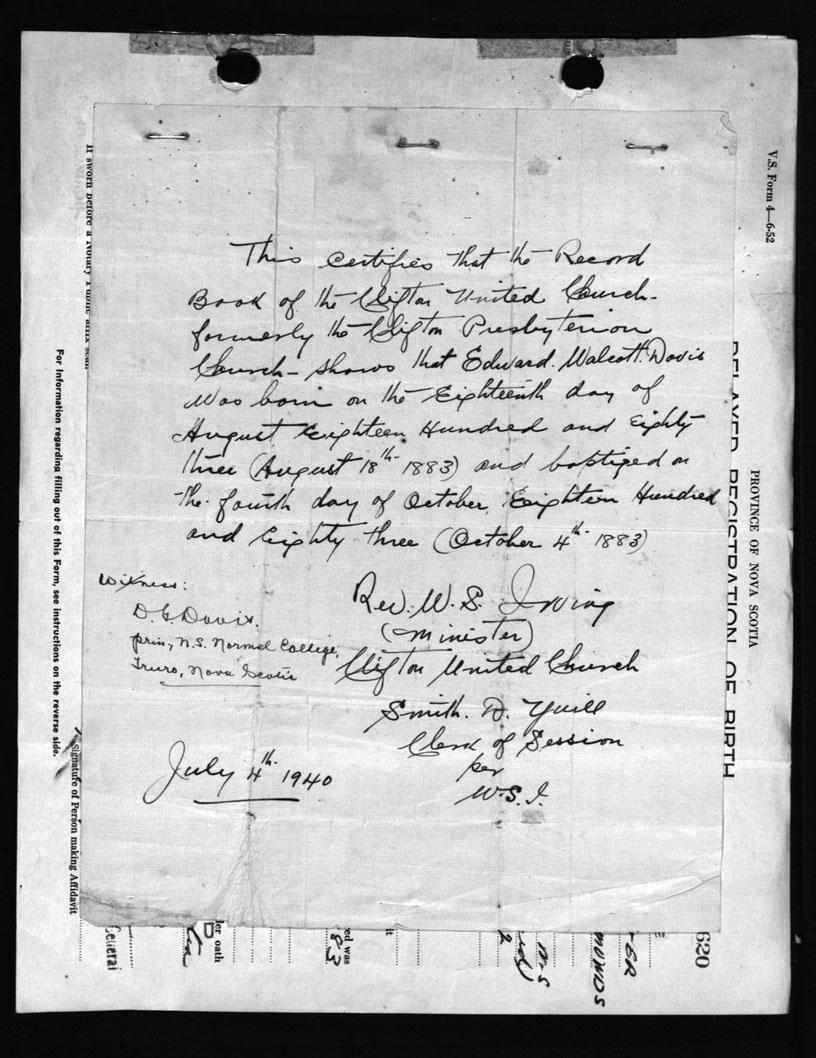 This certifies that the Record
Book of the Clifton United Church-
formerly the Clifton Presbyterion
Church - shows that Edward. Walcott. Davis
was born on the Eighteenth day of
August Eighteen Hundred and Eighty
three (August 18th 1883) and baptized on
the fourth day of October, Eighteen Hundred
and Eighty three (October 4th 1883)
Witness:
D. G. Davis.
prin, N.S. Normal College,
Truro, Nova Scotia
Rev. W. S. Irving
(minister)
Clifton United Church
Smith. D. Yuill
Clerk of Session
per
W.S.I.
July 4th 1940
V.S. Form 4—6-52
PROVINCE OF NOVA SCOTIA
DELAYED REGISTRATION OF BIRTH
If sworn before a Notary Public affix seal
For Information regarding filling out of this Form, see instructions on the reverse side.
Signature of Person making Affidavit
General
der oath
ed was
83
it
2
M.S
MUNDS
620